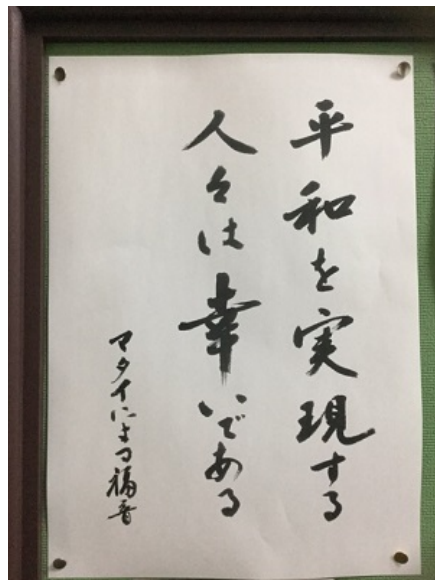 平和を実現する
人々は幸いである
マタイによる福音